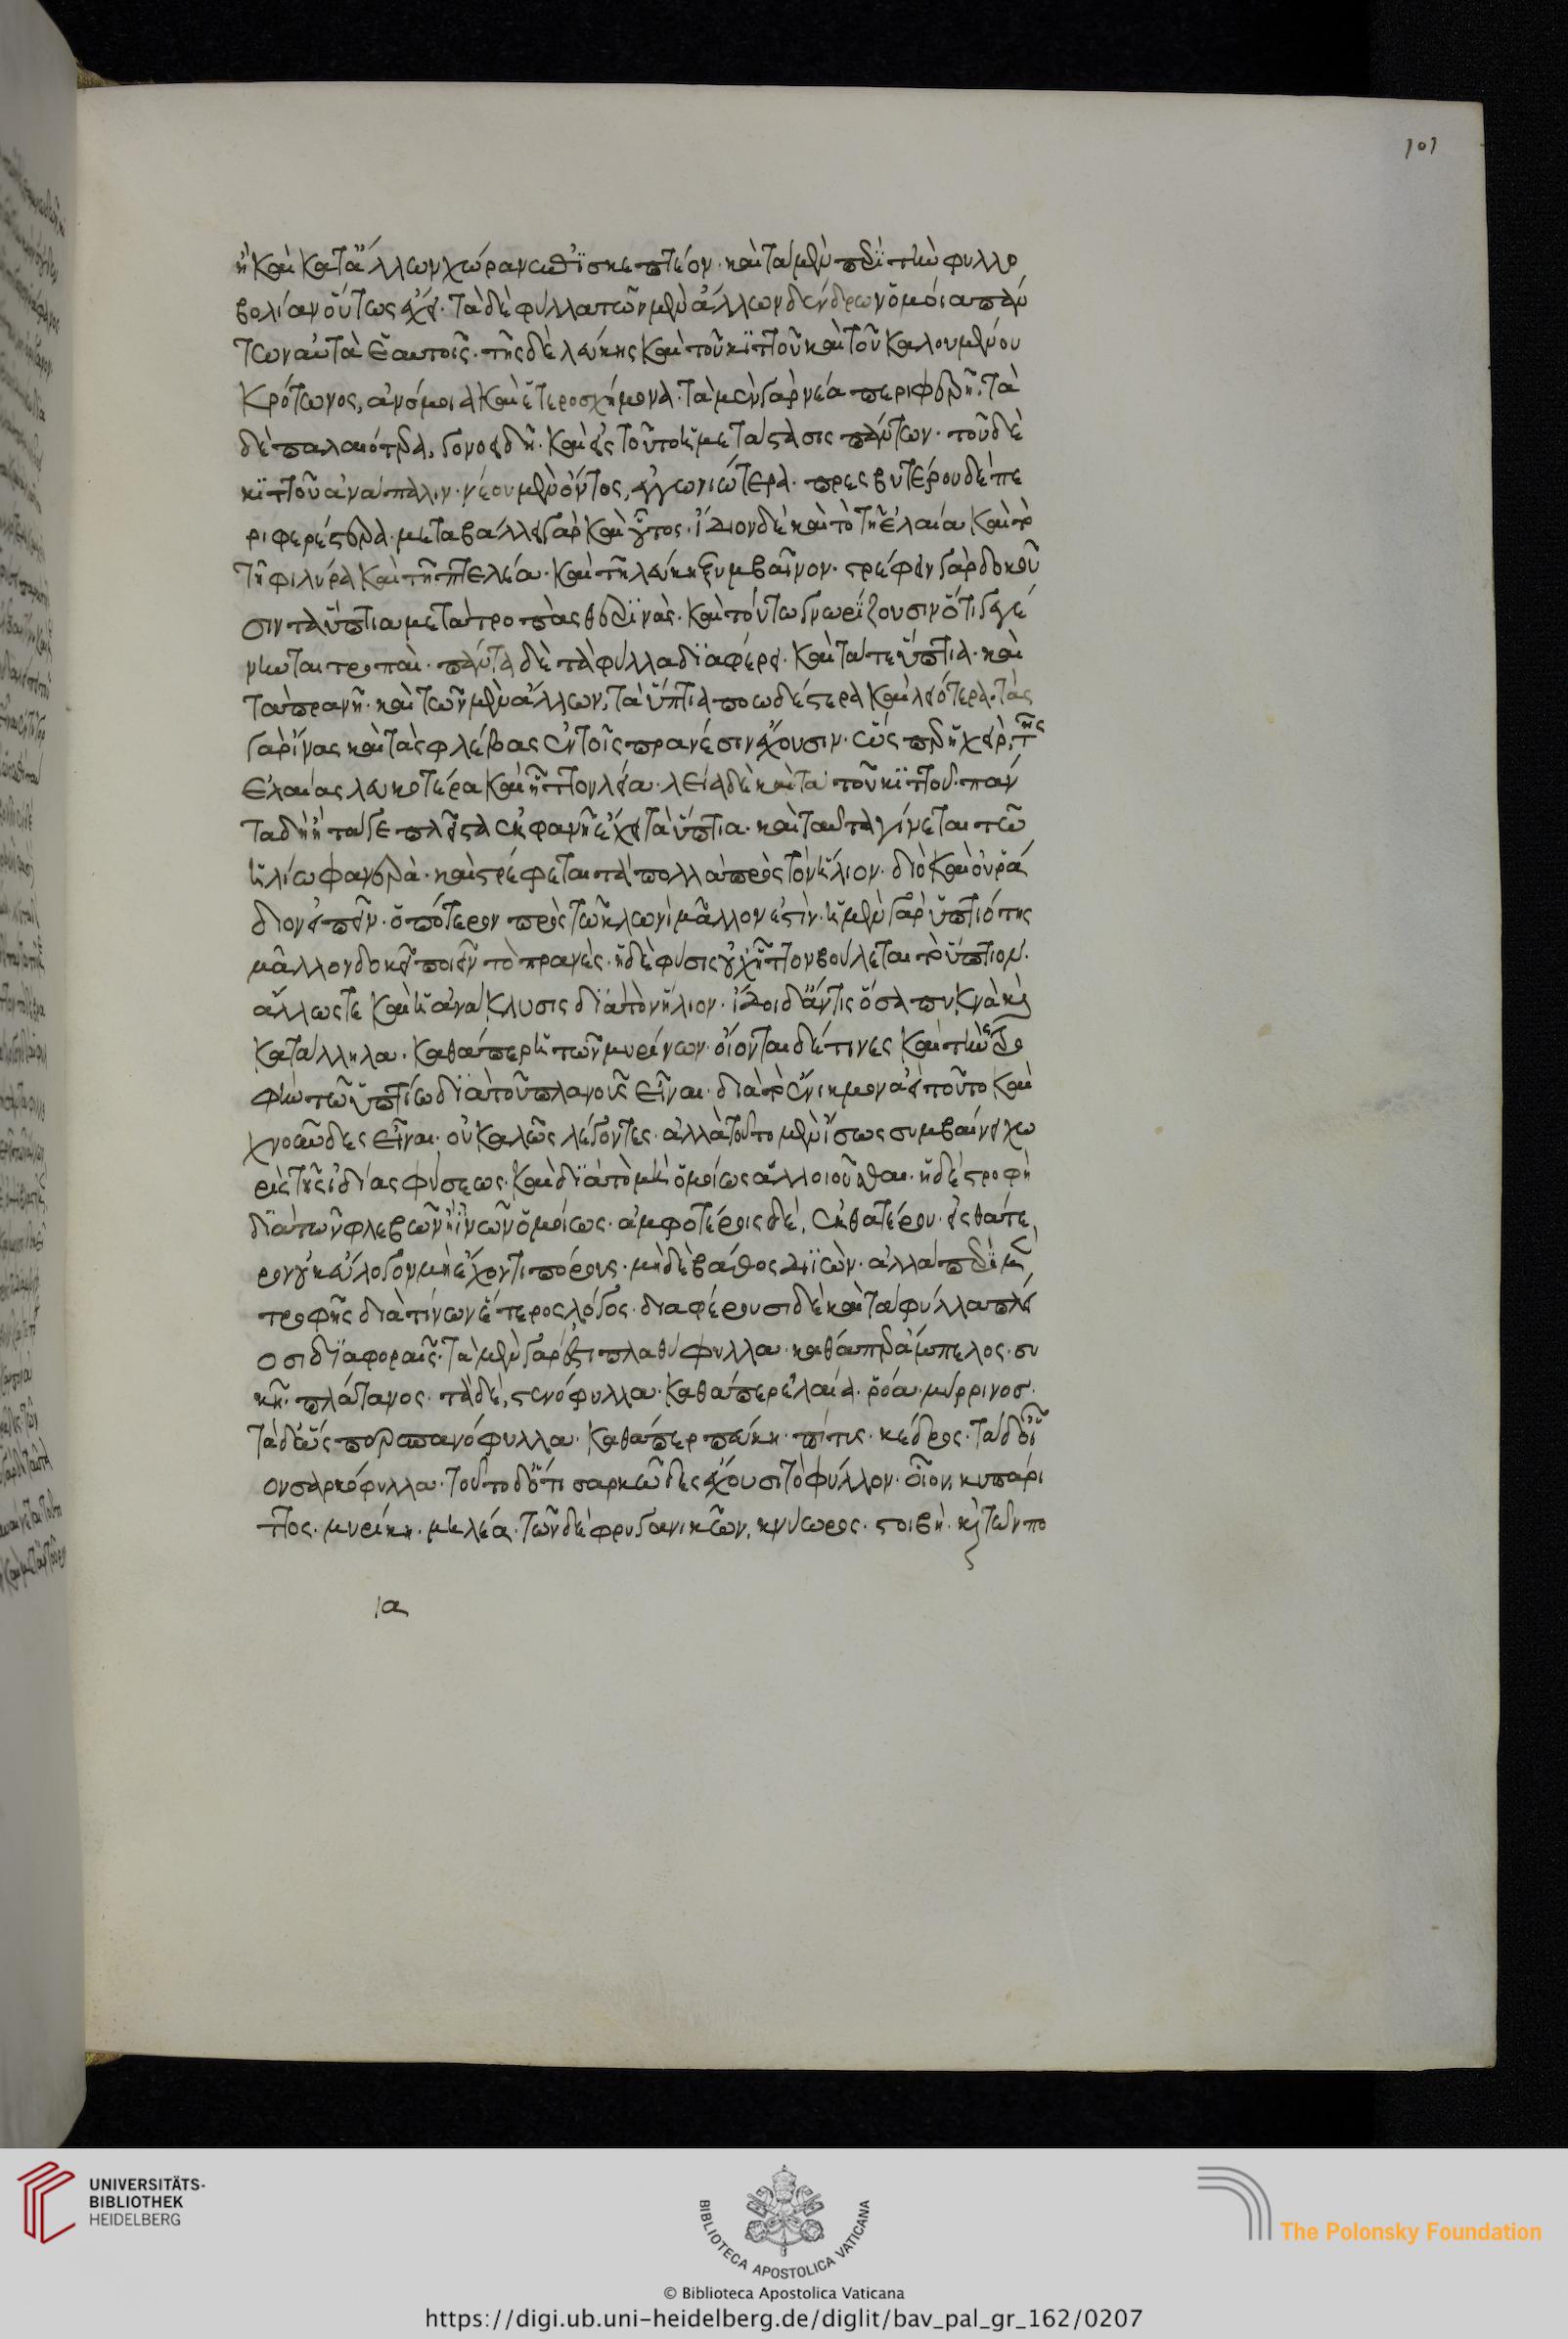 ἢ καὶ κατὰ ἄλλων χώραν ἐπισκεπτέον· καὶ τὰ μὲν περὶ τὴν φυλλο
βολίαν οὕτως ἔχει· τὰ δὲ φύλλα τῶν μὲν ἄλλων δένδρων ὅμοια πάν
των αὐτὰ ἑαυτοῖς· τῆς δὲ λεύκης καὶ τοῦ κιττοῦ καὶ τοῦ καλουμένου
κρότωνος, ἀνόμοια καὶ ἑτεροσχήμονα· τὰ μὲν γὰρ νέα περιφερῆ· τὰ
δὲ παλαιότερα, γονοειδῆ· καὶ εἰς τοῦτο ἡ μετάστασις πάντων· τοῦ δὲ
κιττοῦ ἀνάπαλιν· νέου μὲν ὄντος, πρεσβυτέρου δὲ πε
ριφερέστερα· μεταβάλλει γὰρ καὶ οὗτος· ἴδιον δὲ καὶ τὸ τῇ ἐλαία καὶ τὸ
τῇ φιλύρα καὶ τῇ πτελέα· καὶ τῇ λεύκη ξυμβαῖνον· στρέφειν γὰρ δοκοῦ
σιν τὰ ὕπτια μετὰ τροπὰς θερινὰς· καὶ τούτω γνωρίζουσιν ὅτι γεγέ
νηνται τροπαὶ· πάντα δὲ τὰ φύλλα διαφέρει· κατά τε ὕπτια· καὶ
τὰ πρανῆ· καὶ τῶν μὲν ἄλλων, τὰ ὕπτια ποωδέστερα καὶ λειότερα· τὰς
γὰρ ἴνας καὶ τὰς φλέβας ἐν τοῖς πρανέσιν ἔχουσιν· ὥσπερ ἡ χεὶρ, τῆς
ἐλαίας λευκότερα καὶ ἧττον λεῖα· λεῖα δὲ καὶ τὰ τοῦ κιττοῦ· πάν
τα δὴ ἤ τά γε πλεῖστα ἐκφανῆ ἔχει τὰ ὕπτια· καὶ ταῦτα γίνεται τῶ
ἡλίω φανερὰ· καὶ στρέφεται τὰ πολλὰ πρὸς τὸν ἥλιον· διὸ καὶ οὐ ῥά
διον εἰπεῖν· ὁπότερον πρὸς τῶ κλωνὶ μᾶλλον ἐστὶν· ἡ μὲν γὰρ ὑπτιότης
μᾶλλον δοκεῖ ποιεῖν τὸ πρανὲς· ἡ δὲ φύσις οὐχ ἧττον βούλεται τὸ ὕπτιον·
ἄλλως τε καὶ ἡ ἀνάκλυσις διὰ τὸν ἥλιον· ἴδοι δ' ἄν τις ὅσα πυκνὰ καὶ
κατάλληλα· καθάπερ ἡ τῶν μυρίνων· οἴονται δέ τινες καὶ τὴν τρο
φὴν τῶ ὑπτίω διὰ τοῦ πρανοῦς εἶναι· διὰ τὸ ἔνικμον ἀεὶ τοῦτο καὶ
χνοῶδες εἶναι· οὐ καλῶς λέγοντες· ἀλλὰ τοῦτο μὲν ἴσως συμβαίνει χω
ρὶς τῆς ἰδίας φύσεως· καὶ διὰ τὸ μὴ ὁμοίως ἀλλοιοῦσθαι· ἡ δὲ τροφὴ
διὰ τῶν φλεβῶν ἢ ἰνῶν ὁμοίως· ἀμφοτέροις δὲ, ἐκ θατέρου· εἰς θάτε
ρον οὐκ εὔλογον μὴ ἔχοντι πόρους· μηδὲ βάθος δι' ὧν· ἀλλὰ περὶ μὲν
τροφῆς διὰ τίνων ἕτερος λόγος· διαφέρουσι δὲ καὶ τὰ φύλλα πλεί
οσι διαφοραῖς· τὰ μὲν γάρ ἐστι πλατύφυλλα· καθάπερ ἄμπελος· συ
κῆ· πλάτανος· τὰ δὲ, στενόφυλλα· καθάπερ ἐλαία· ῥόα· μύρρινος·
τὰ δ' ὥσπερ ἀπανόφυλλα· καθάπερ πεύκη· πίτυς· κέδρος· τὰ δ' οἷ
ον σαρκόφυλλα· τοῦτο δ' ὅτι σαρκῶδες ἔχουσι τὸ φύλλον· οἷον, κυπάρι
ττος· μυρίκη· μηλέα· τῶν δὲ φρυγανικῶν, κνέωρος· στοιβὴ· καὶ τῶν πο
ια
101
UNIVERSITÄTS-
BIBLIOTHEK
HEIDELBERG
BIBLIOTECA APOSTOLICA VATICANA
The Polonsky Foundation
© Biblioteca Apostolica Vaticana
https://digi.ub.uni-heidelberg.de/diglit/bav_pal_gr_162/0207